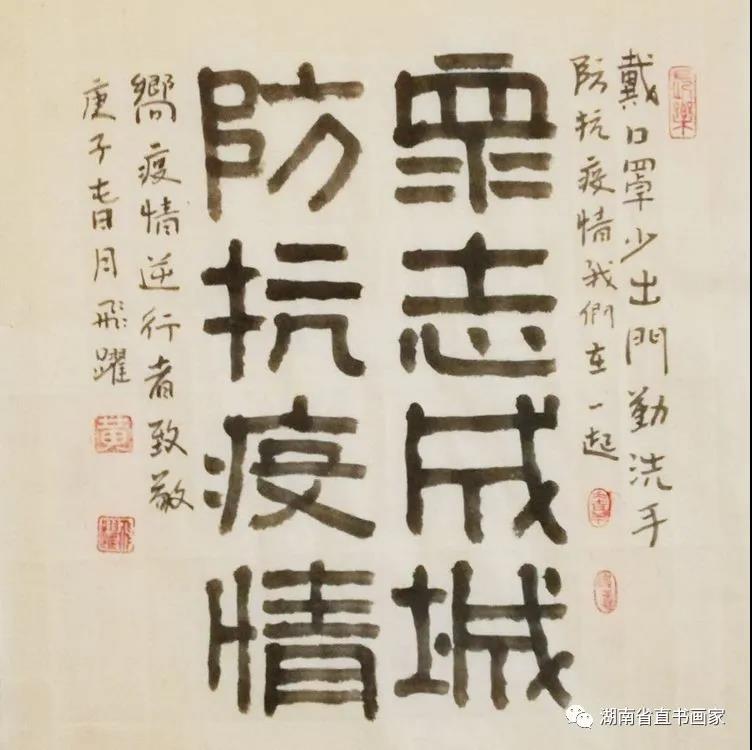 長樂
戴口罩少出門勤洗手
防抗疫情我們在一起
眾志成城
防抗疫情
嚮疫情逆行者致敬
庚子旾月飛躍
黄
湖南省直书画家